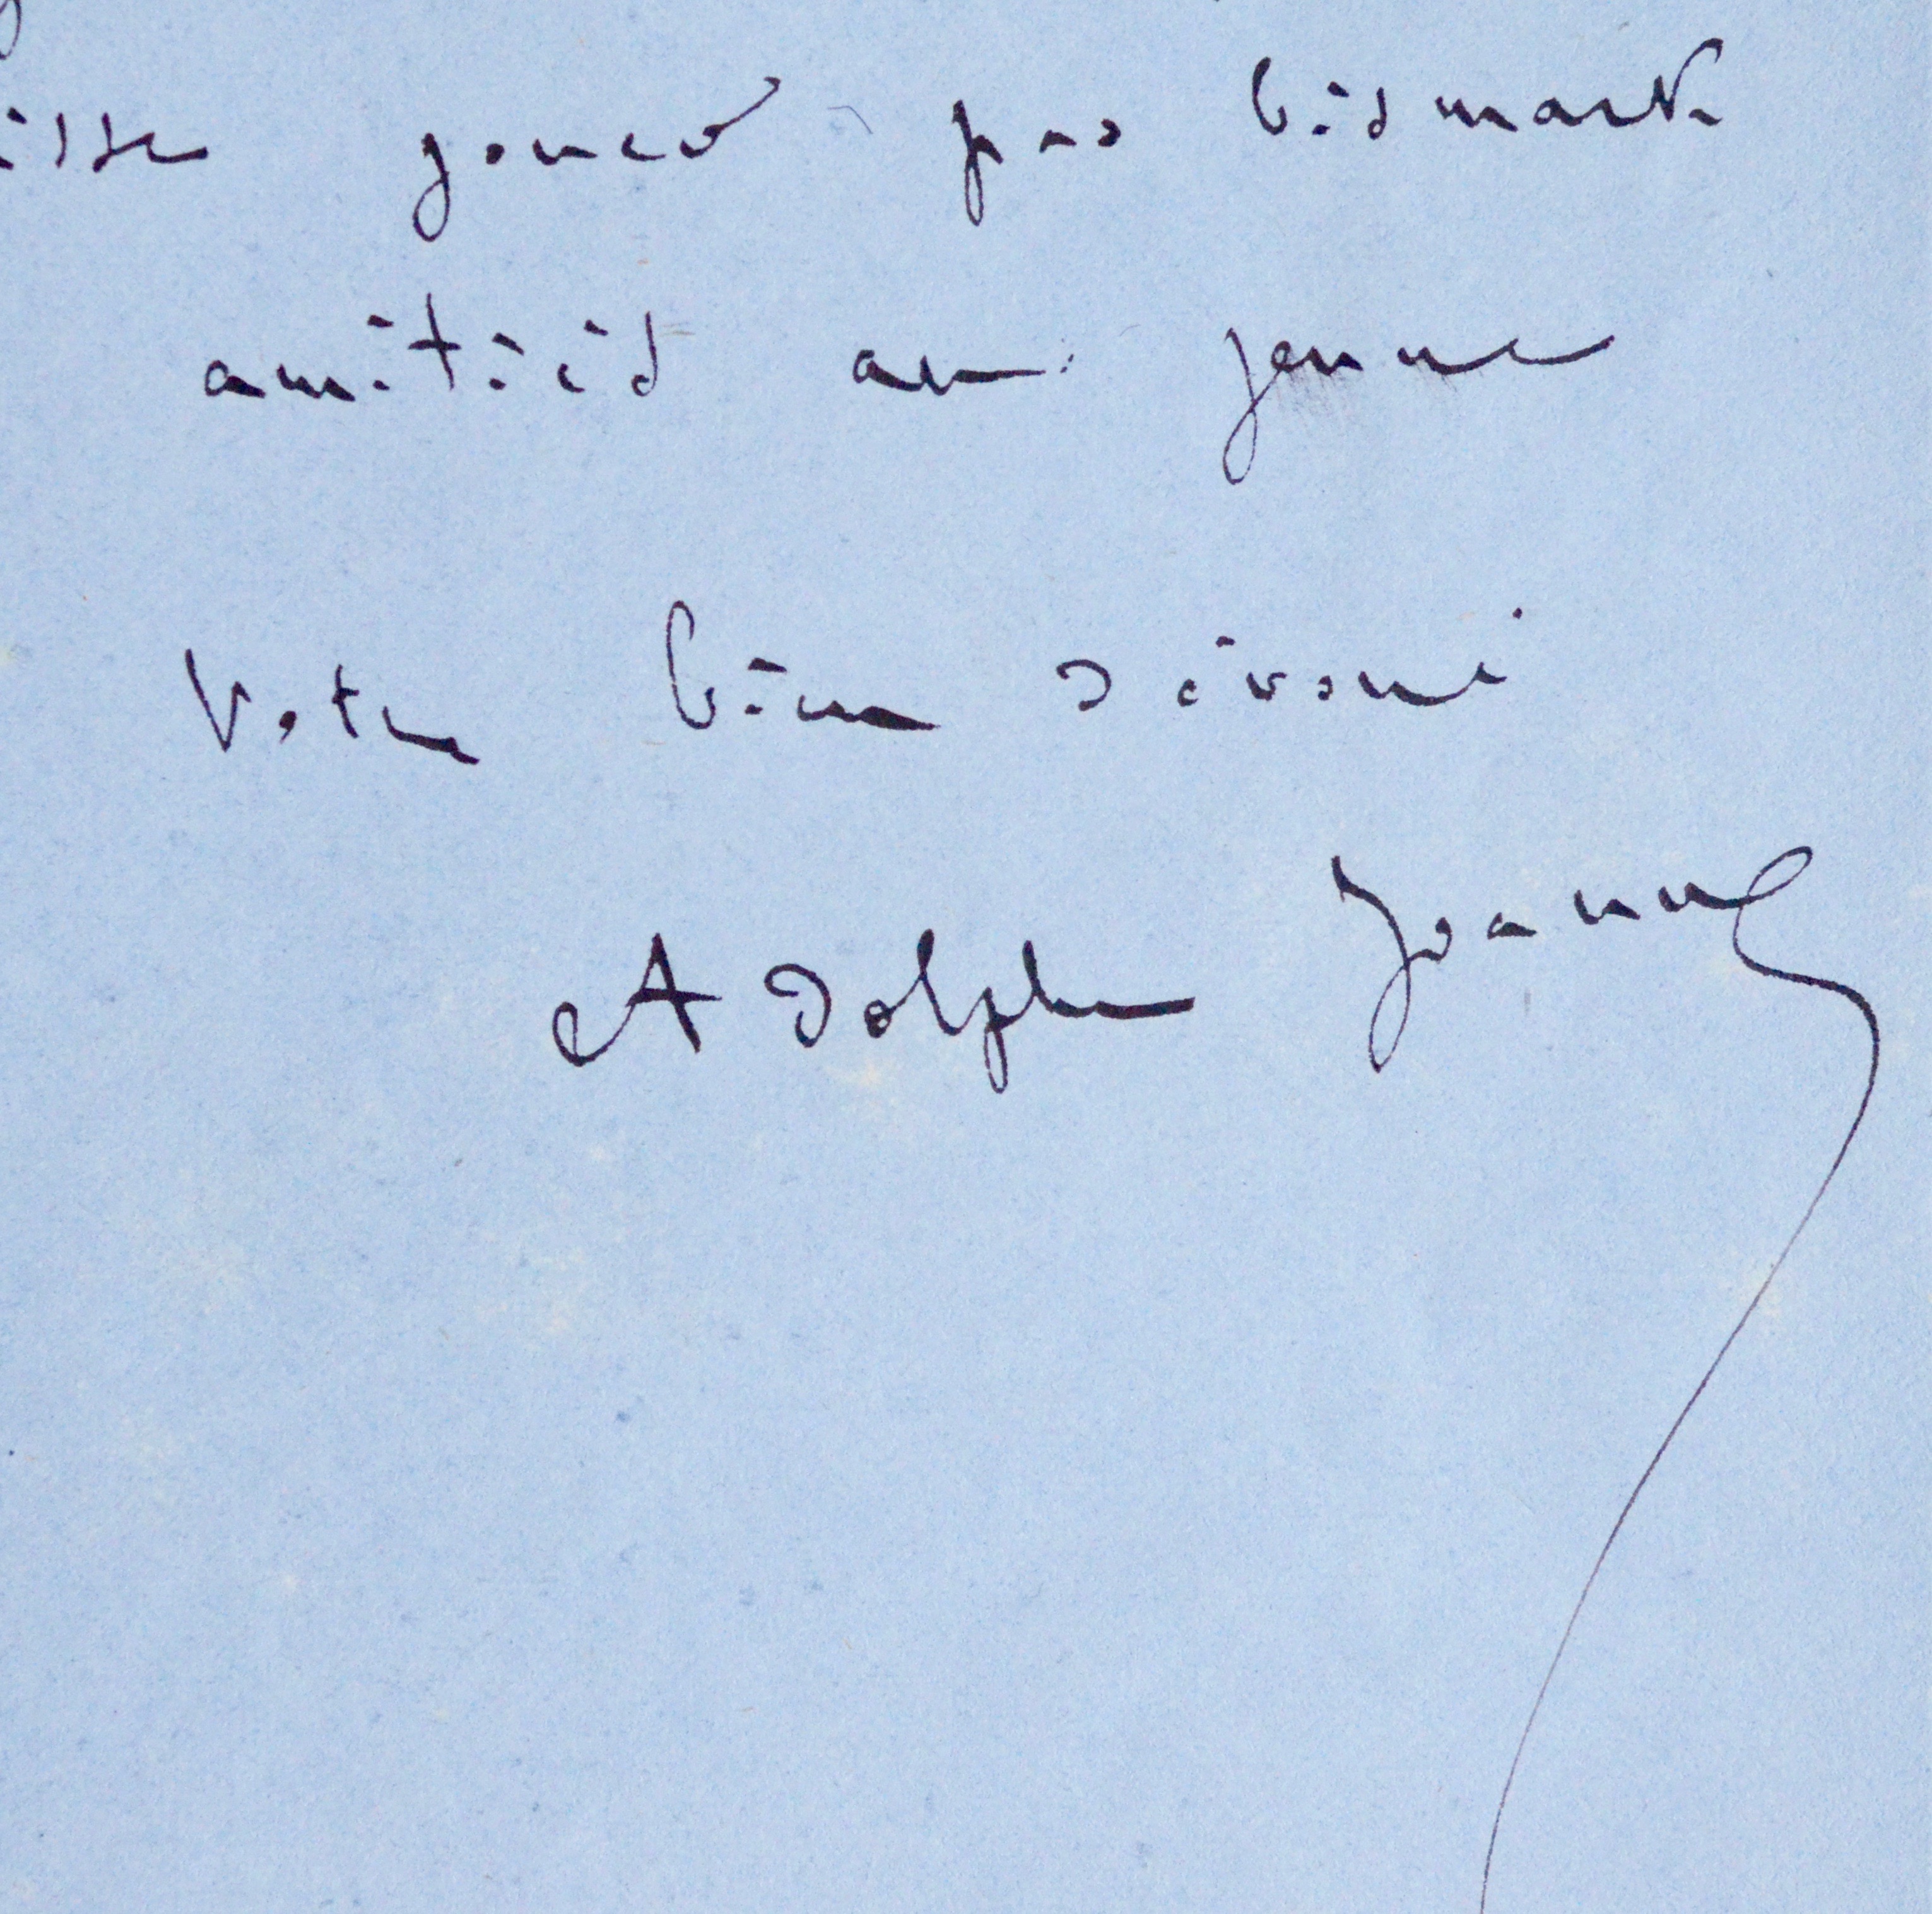 isse jouer par bismark
amitiés au jeune
Votre bien dévoué
Adolphe Joanne